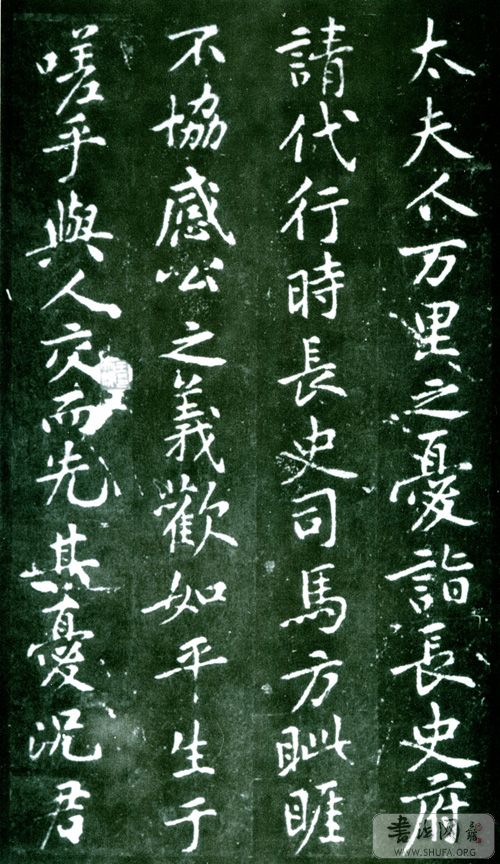 太夫人万里之憂詣長史府
請代行時長史司馬方眦睚
不協感公之義歡如平生于
嗟乎與人交而先其憂況君
书法网
WWW.SHUFA.ORG